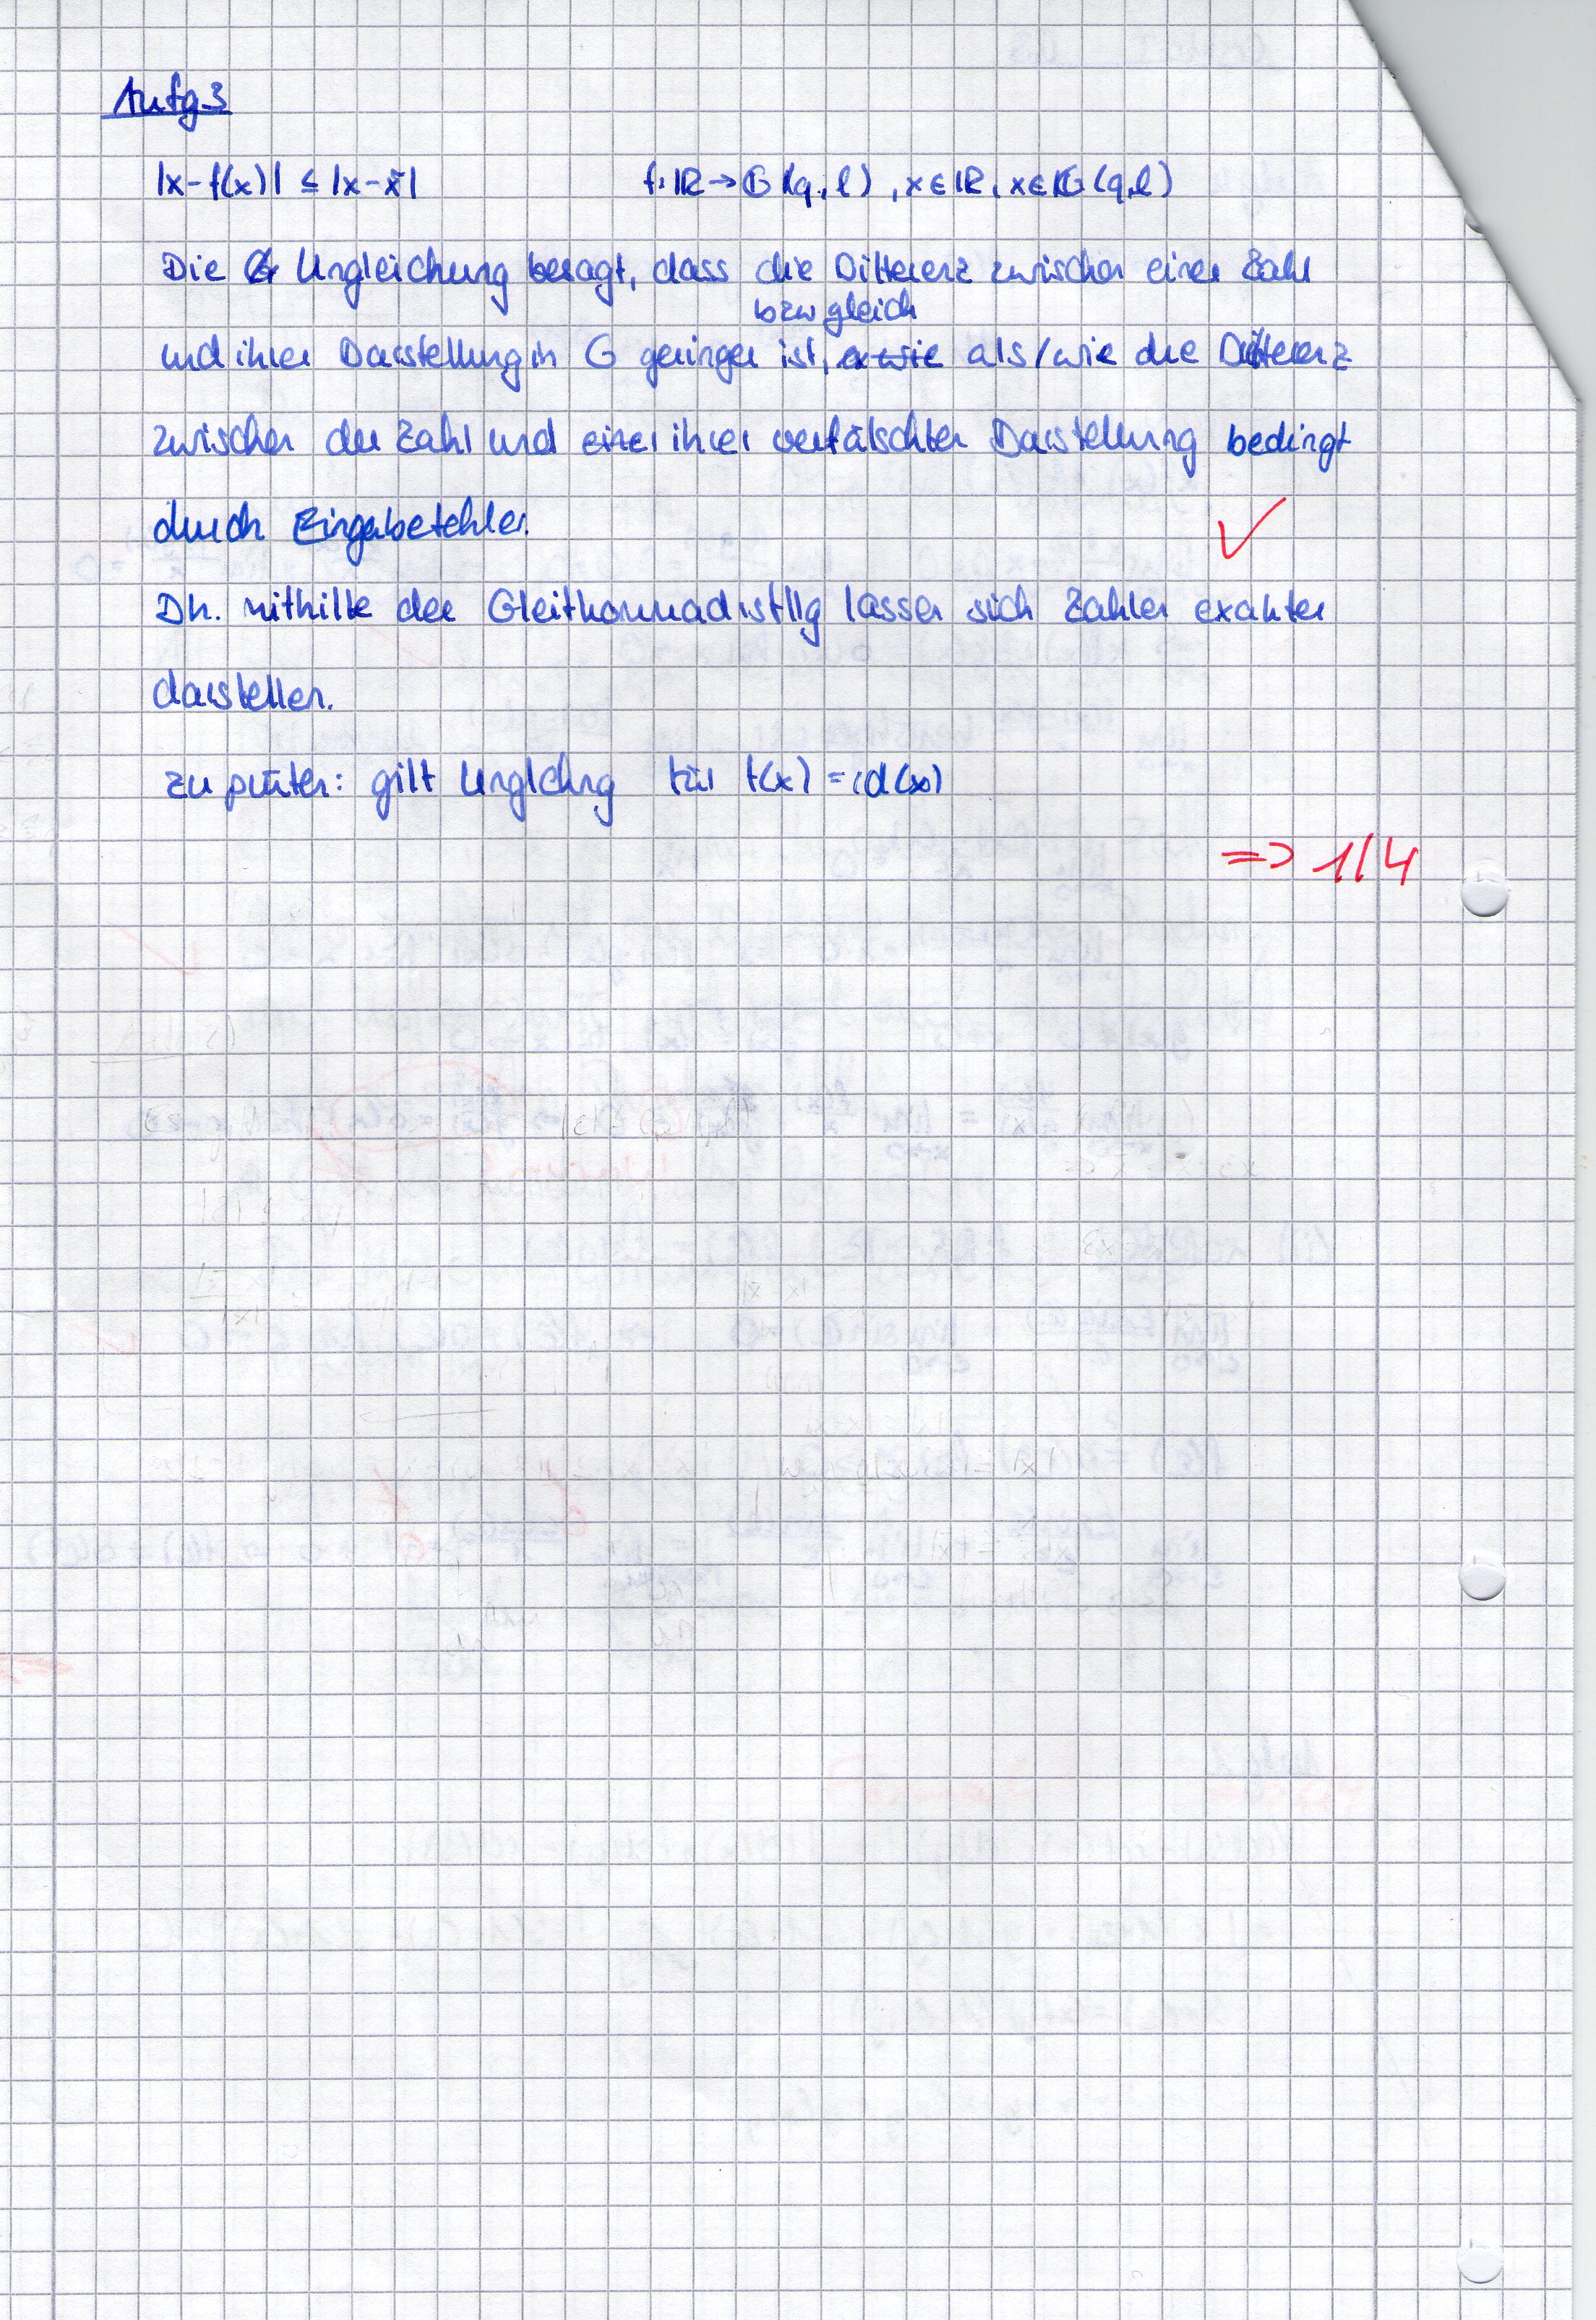 Aufg 3
|x-f(x)| ≤ |x-x̃| f: ℝ → G(q,l), x∈ℝ, x∈G(q,l)
Die Ungleichung besagt, dass die Differenz zwischen einer Zahl
bzw gleich
und ihrer Darstellung in G geringer ist, als/wie die Differenz
zwischen der Zahl und ihrer verfälschten Darstellung bedingt
durch Eingabefehler.
Dh. mithilfe der Gleitkommadrstllg lassen sich Zahlen exakter
darstellen.
zu prüfen: gilt Unglchng für f(x) = id(x)
=> 1/4